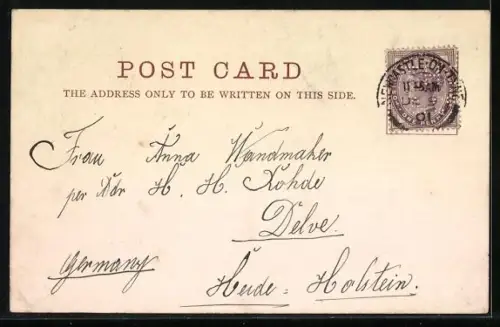 POST CARD
THE ADDRESS ONLY TO BE WRITTEN ON THIS SIDE.
NEWCASTLE-ON-TYNE
01
Frau Anna Wandmaker
per Adr H. H. Rohde
Delve.
Germany
Heide = Holstein.